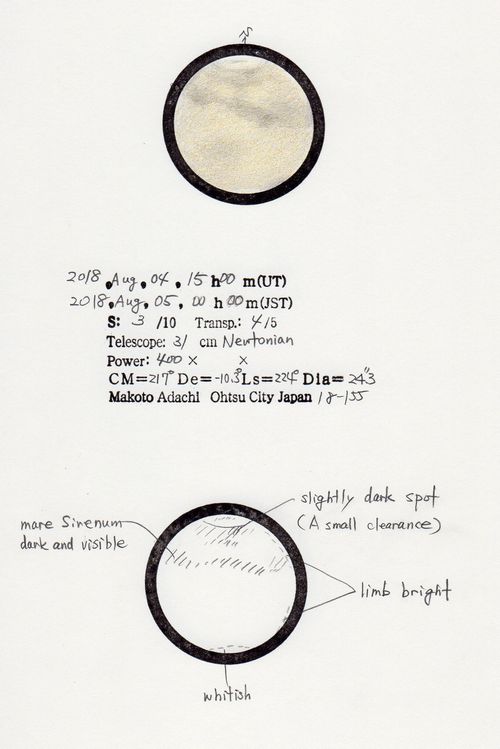 S
2018, Aug, 04, 15 h 00 m(UT)
2018, Aug, 05, 00 h 00 m(JST)
S: 3 /10 Transp.: 4/5
Telescope: 31 cm Newtonian
Power: 400 × ×
CM=217° De= -10.3° Ls= 224° Dia= 24"3
Makoto Adachi Ohtsu City Japan 18-155
slightly dark spot
(A small clearance)
mare Sirenum
dark and visible
limb bright
whitish